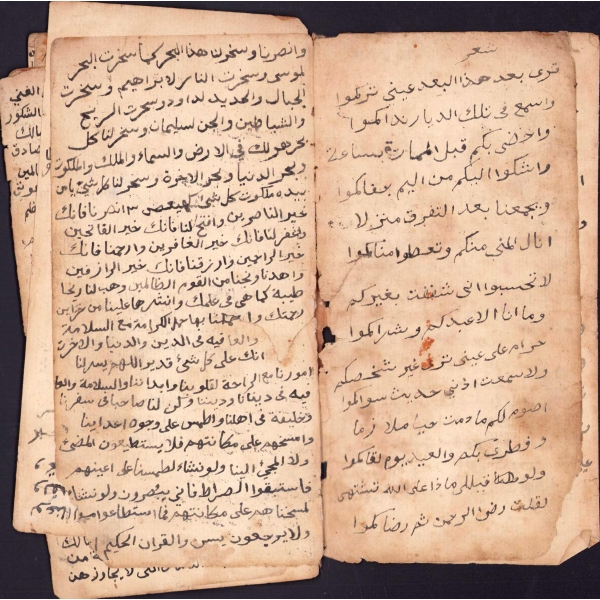 شعر
ترى بعد هذا البعد عيني تركموا
واسمع في تلك الديار نداكموا
واحضى بكم قبل الممات بساعة
واشكوا اليكم من اليم جفاكموا
ويجمعنا بعد التفرق منزلا
انال المنى منكم وتعطوا مناكموا
لا تحسبوا اني شغفت بغيركم
وما انا الا عبدكم وشراكموا
حرام على عيني ترى غير شخصكم
ولا سمعت اذني حديث سواكموا
اصوم لكم مادمت حيا ملازما
وفطري بكم والعيد يوم لقاكموا
ولو قيل لي ماذا على الله تشتهي
لقلت رضى الرحمن ثم رضاكموا
وانصرنا وسخرلنا هذا البحر كما سخرت البحر
لموسى وسخرت النار لابراهيم وسخرت
الجبال والحديد لداود وسخرت الريح
والشياطين والجن لسليمان وسخرلنا كل
بحر هولك في الارض والسماء والملك والملكوت
وبحر الدنيا وبحر الاخرة وسخرلنا كل شئ يا من
بيده ملكوت كل شئ كهيعص ٣ انصرنا فانك
خير الناصرين وافتح لنا فانك خير الفاتحين
واغفر لنا فانك خير الغافرين وارحمنا فانك
خير الراحمين وارزقنا فانك خير الرازقين
واهدنا ونجنا من القوم الظالمين وهب لنا ريحا
طيبة كما هي في علمك وانشرها علينا من خزاين
رحمتك واحملنا بها حمل الكرامة مع السلامة
والعافيه في الدين والدنيا والاخرة
انك على كل شئ قدير اللهم يسرلنا
امورنا مع الراحة لقلوبنا وابداننا والسلامة والعا
فيه في ديننا ودنيانا وكن لنا صاحبا في سفرنا
وخليفة في اهلنا واطمس على وجوه اعداينا
وامسخهم على مكانتهم فلا يستطيعون المضي
ولا المجئ الينا ولو نشاء لطمسنا على اعينهم
فاستبقوا الصراط فاني يبصرون ولو نشاء
لمسخناهم على مكانتهم فما استطاعوا مضيا
ولا يرجعون يس والقران الحكيم